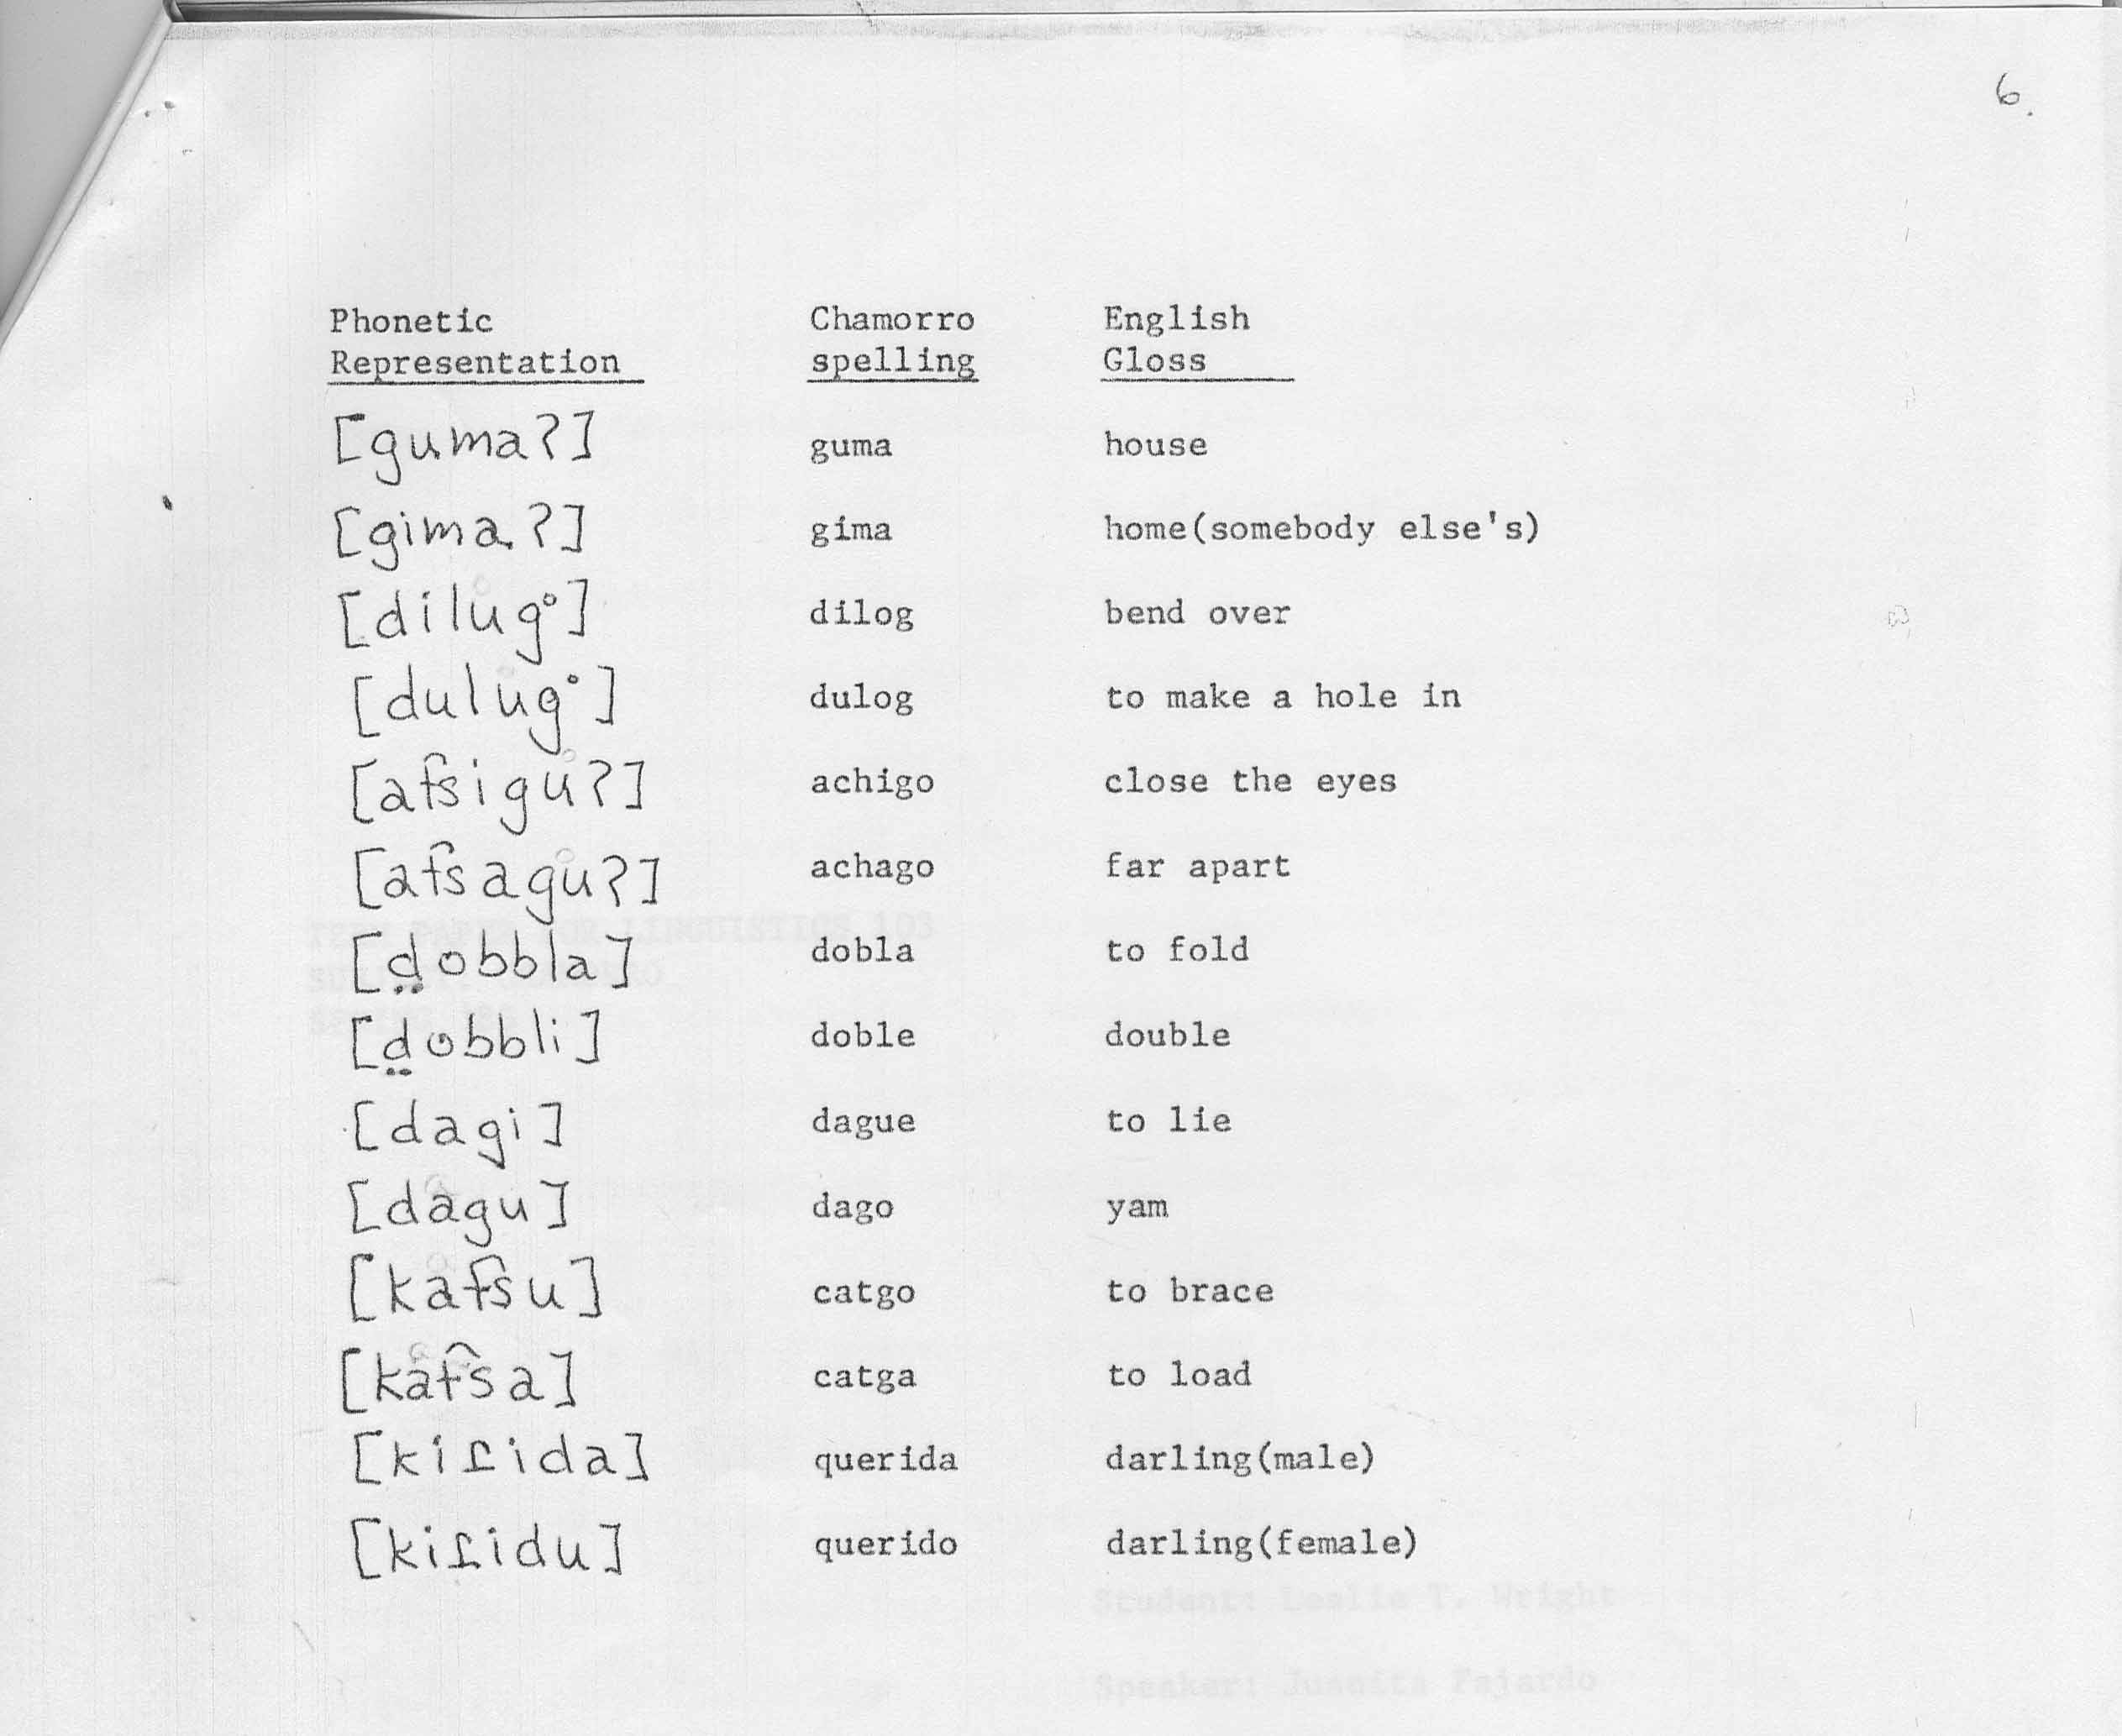 6.
Phonetic Chamorro English
Representation spelling Gloss
[gumaʔ] guma house
[gimaʔ] gima home(somebody else's)
[dilug°] dilog bend over
[dulug°] dulog to make a hole in
[at͡siguʔ] achigo close the eyes
[at͡saguʔ] achago far apart
[d̤obbla] dobla to fold
[d̤obbli] doble double
[dagi] dague to lie
[dagu] dago yam
[kat͡su] catgo to brace
[kat͡sa] catga to load
[kiɾida] querida darling(male)
[kiɾidu] querido darling(female)
TERM PAPER FOR LINGUISTICS 103
Student: Leslie T. Wright
Speaker: Juanita Fajardo